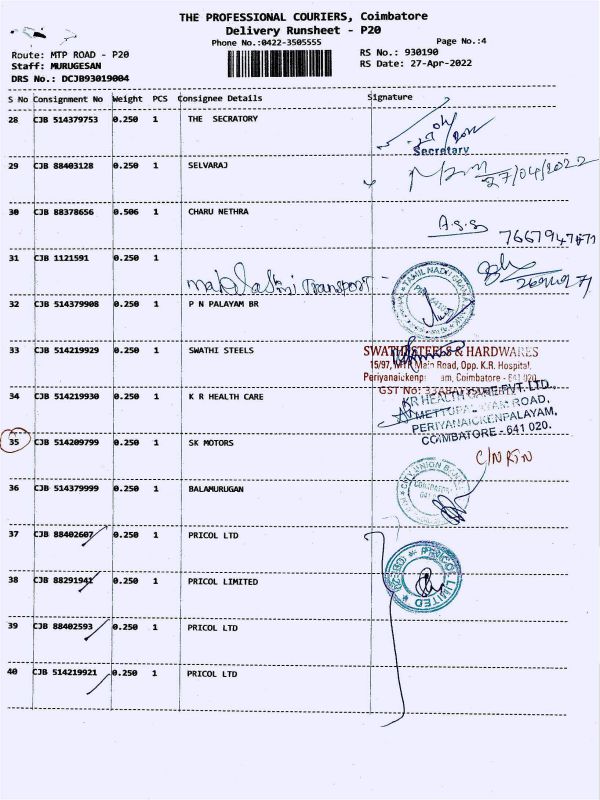 THE PROFESSIONAL COURIERS, Coimbatore
Delivery Runsheet - P20
Phone No.:0422-3505555
Page No.:4
Route: MTP ROAD - P20
Staff: MURUGESAN
DRS No.: DCJB93019004
RS No.: 930190
RS Date: 27-Apr-2022
S No Consignment No Weight PCS Consignee Details Signature
28 CJB 514379753 0.250 1 THE SECRATORY
Secretary
29 CJB 88403128 0.250 1 SELVARAJ
27/04/2022
30 CJB 88378656 0.506 1 CHARU NETHRA
A.S.S
31 CJB 1121591 0.250 1
Transport
32 CJB 514379908 0.250 1 P N PALAYAM BR
TAMIL NADU GRAMA
33 CJB 514219929 0.250 1 SWATHI STEELS
SWATHI STEELS & HARDWARES
15/97, MTP Main Road, Opp. K.R. Hospital,
Periyanaickenpalayam, Coimbatore - 641 020
GST No:
34 CJB 514219930 0.250 1 K R HEALTH CARE
KR HEALTH CARE PVT. LTD.,
METTUPALAYAM ROAD,
PERIYANAICKENPALAYAM,
COIMBATORE - 641 020.
35 CJB 514209799 0.250 1 SK MOTORS
C/N RTN
36 CJB 514379999 0.250 1 BALAMURUGAN
CITY UNION BANK
COIMBATORE
37 CJB 88402607 0.250 1 PRICOL LTD
38 CJB 88291941 0.250 1 PRICOL LIMITED
PRICOL LIMITED
39 CJB 88402593 0.250 1 PRICOL LTD
40 CJB 514219921 0.250 1 PRICOL LTD